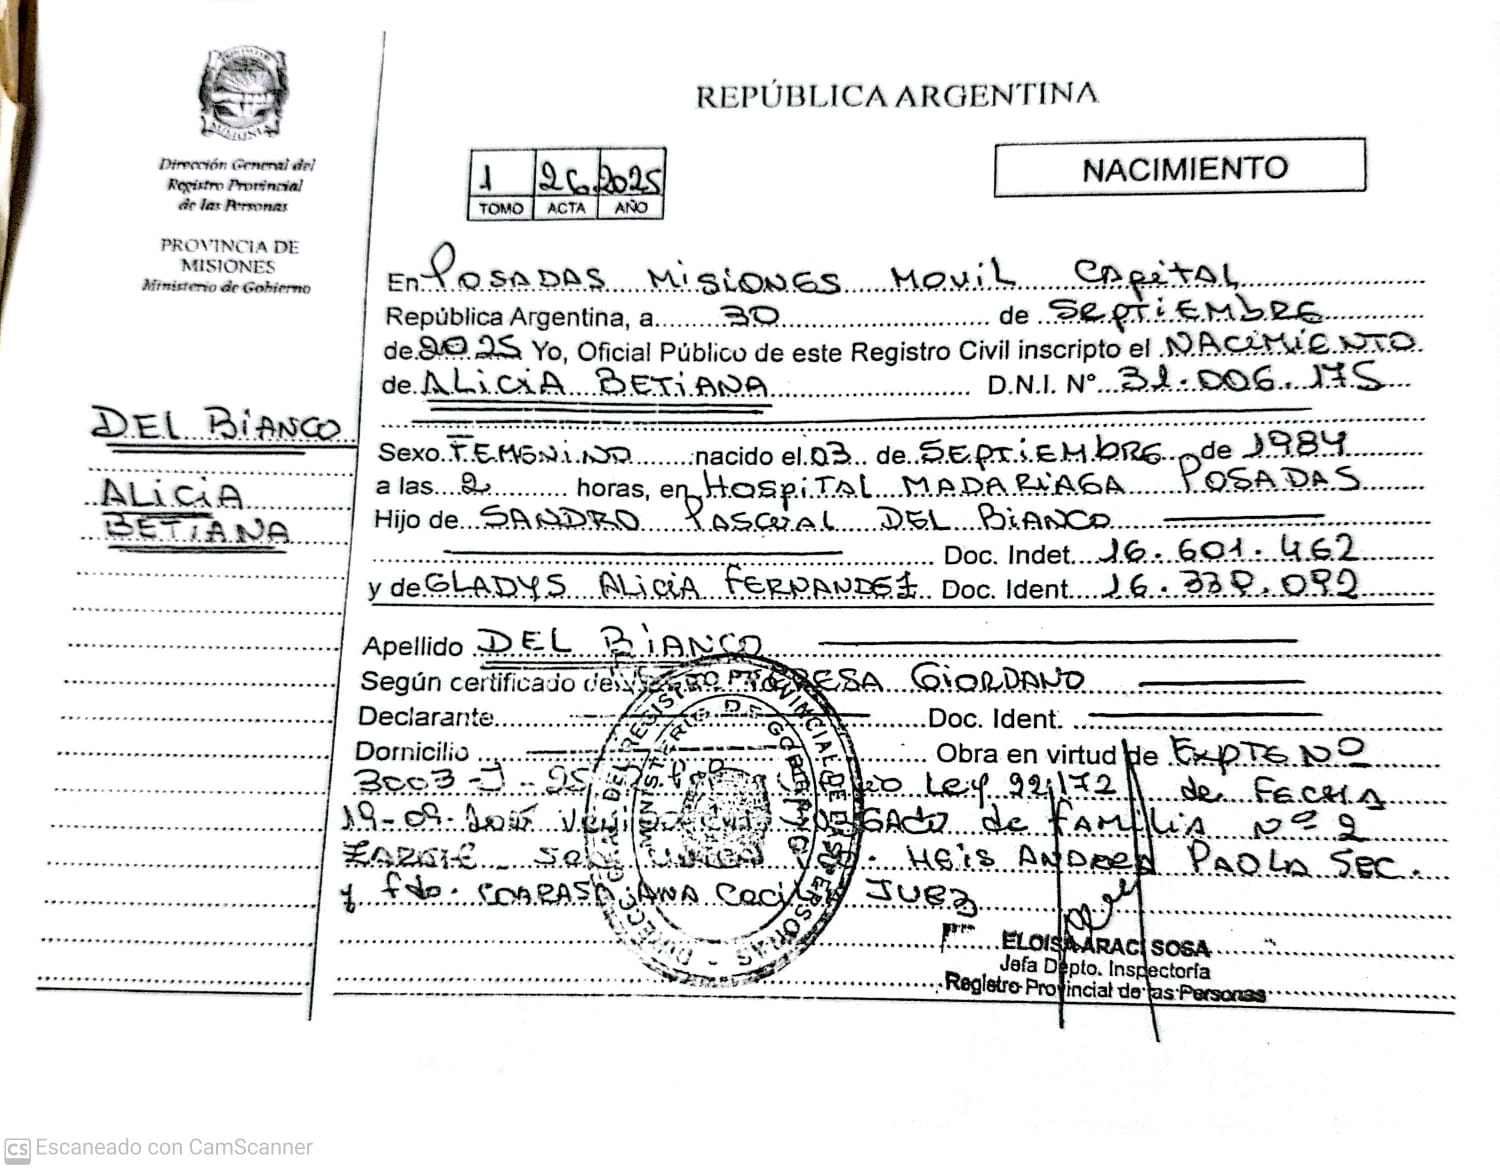 PROVINCIA DE
MISIONES
Dirección General del
Registro Provincial
de las Personas
PROVINCIA DE
MISIONES
Ministerio de Gobierno
DEL BiANCO
ALiCiA
BETiANA
REPÚBLICA ARGENTINA
1 26 2025
TOMO ACTA AÑO
NACIMIENTO
En POSADAS MiSiONES MOViL CAPiTAL
República Argentina, a 30 de SEPTiEMBRE
de 2025 Yo, Oficial Público de este Registro Civil inscripto el NACiMiENTO
de ALiCiA BETiANA D.N.I. N° 31.006.175
Sexo FEMENiNO nacido el 03 de SEPTiEMBRE de 1984
a las 2 horas, en HOSPiTAL MADARiAGA POSADAS
Hijo de SANDRO PASCUAL DEL BiANCO
Doc. Indet. 16.601.462
y de GLADYS ALiCiA FERNANDEZ Doc. Ident. 16.339.092
Apellido DEL BiANCO
Según certificado de TERESA GiORDANO
Declarante Doc. Ident.
Domicilio Obra en virtud de EXPTE Nº
3003-J-25 Ley 22172 de FECHA
19-09-2025 JUZGADO de FAMiLiA Nº 2
ZARATE HEiS ANDREA PAOLA SEC.
y fdo. ANA CeciliA JUEZ
DIRECC. GRAL. DEL REGISTRO PROVINCIAL DE LAS PERSONAS
MINISTERIO DE GOBIERNO
ELOISA ARACI SOSA
Jefa Dpto. Inspectoría
Registro Provincial de las Personas
CS Escaneado con CamScanner